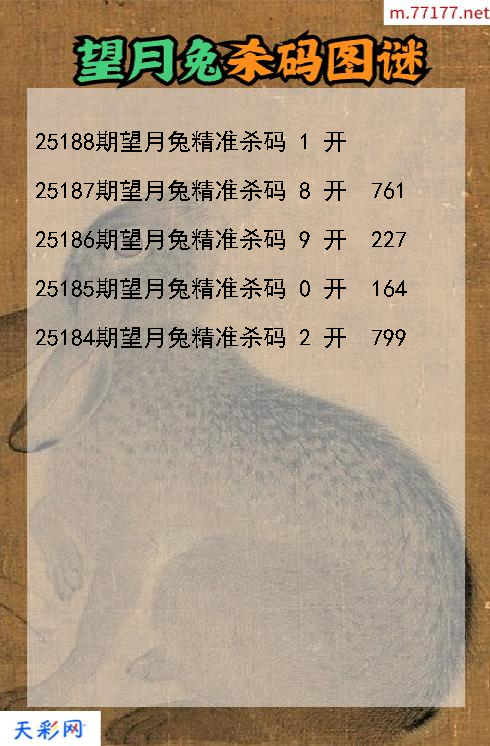 m.77177.net
望月兔杀码图谜
25188期望月兔精准杀码 1 开
25187期望月兔精准杀码 8 开 761
25186期望月兔精准杀码 9 开 227
25185期望月兔精准杀码 0 开 164
25184期望月兔精准杀码 2 开 799
天彩网